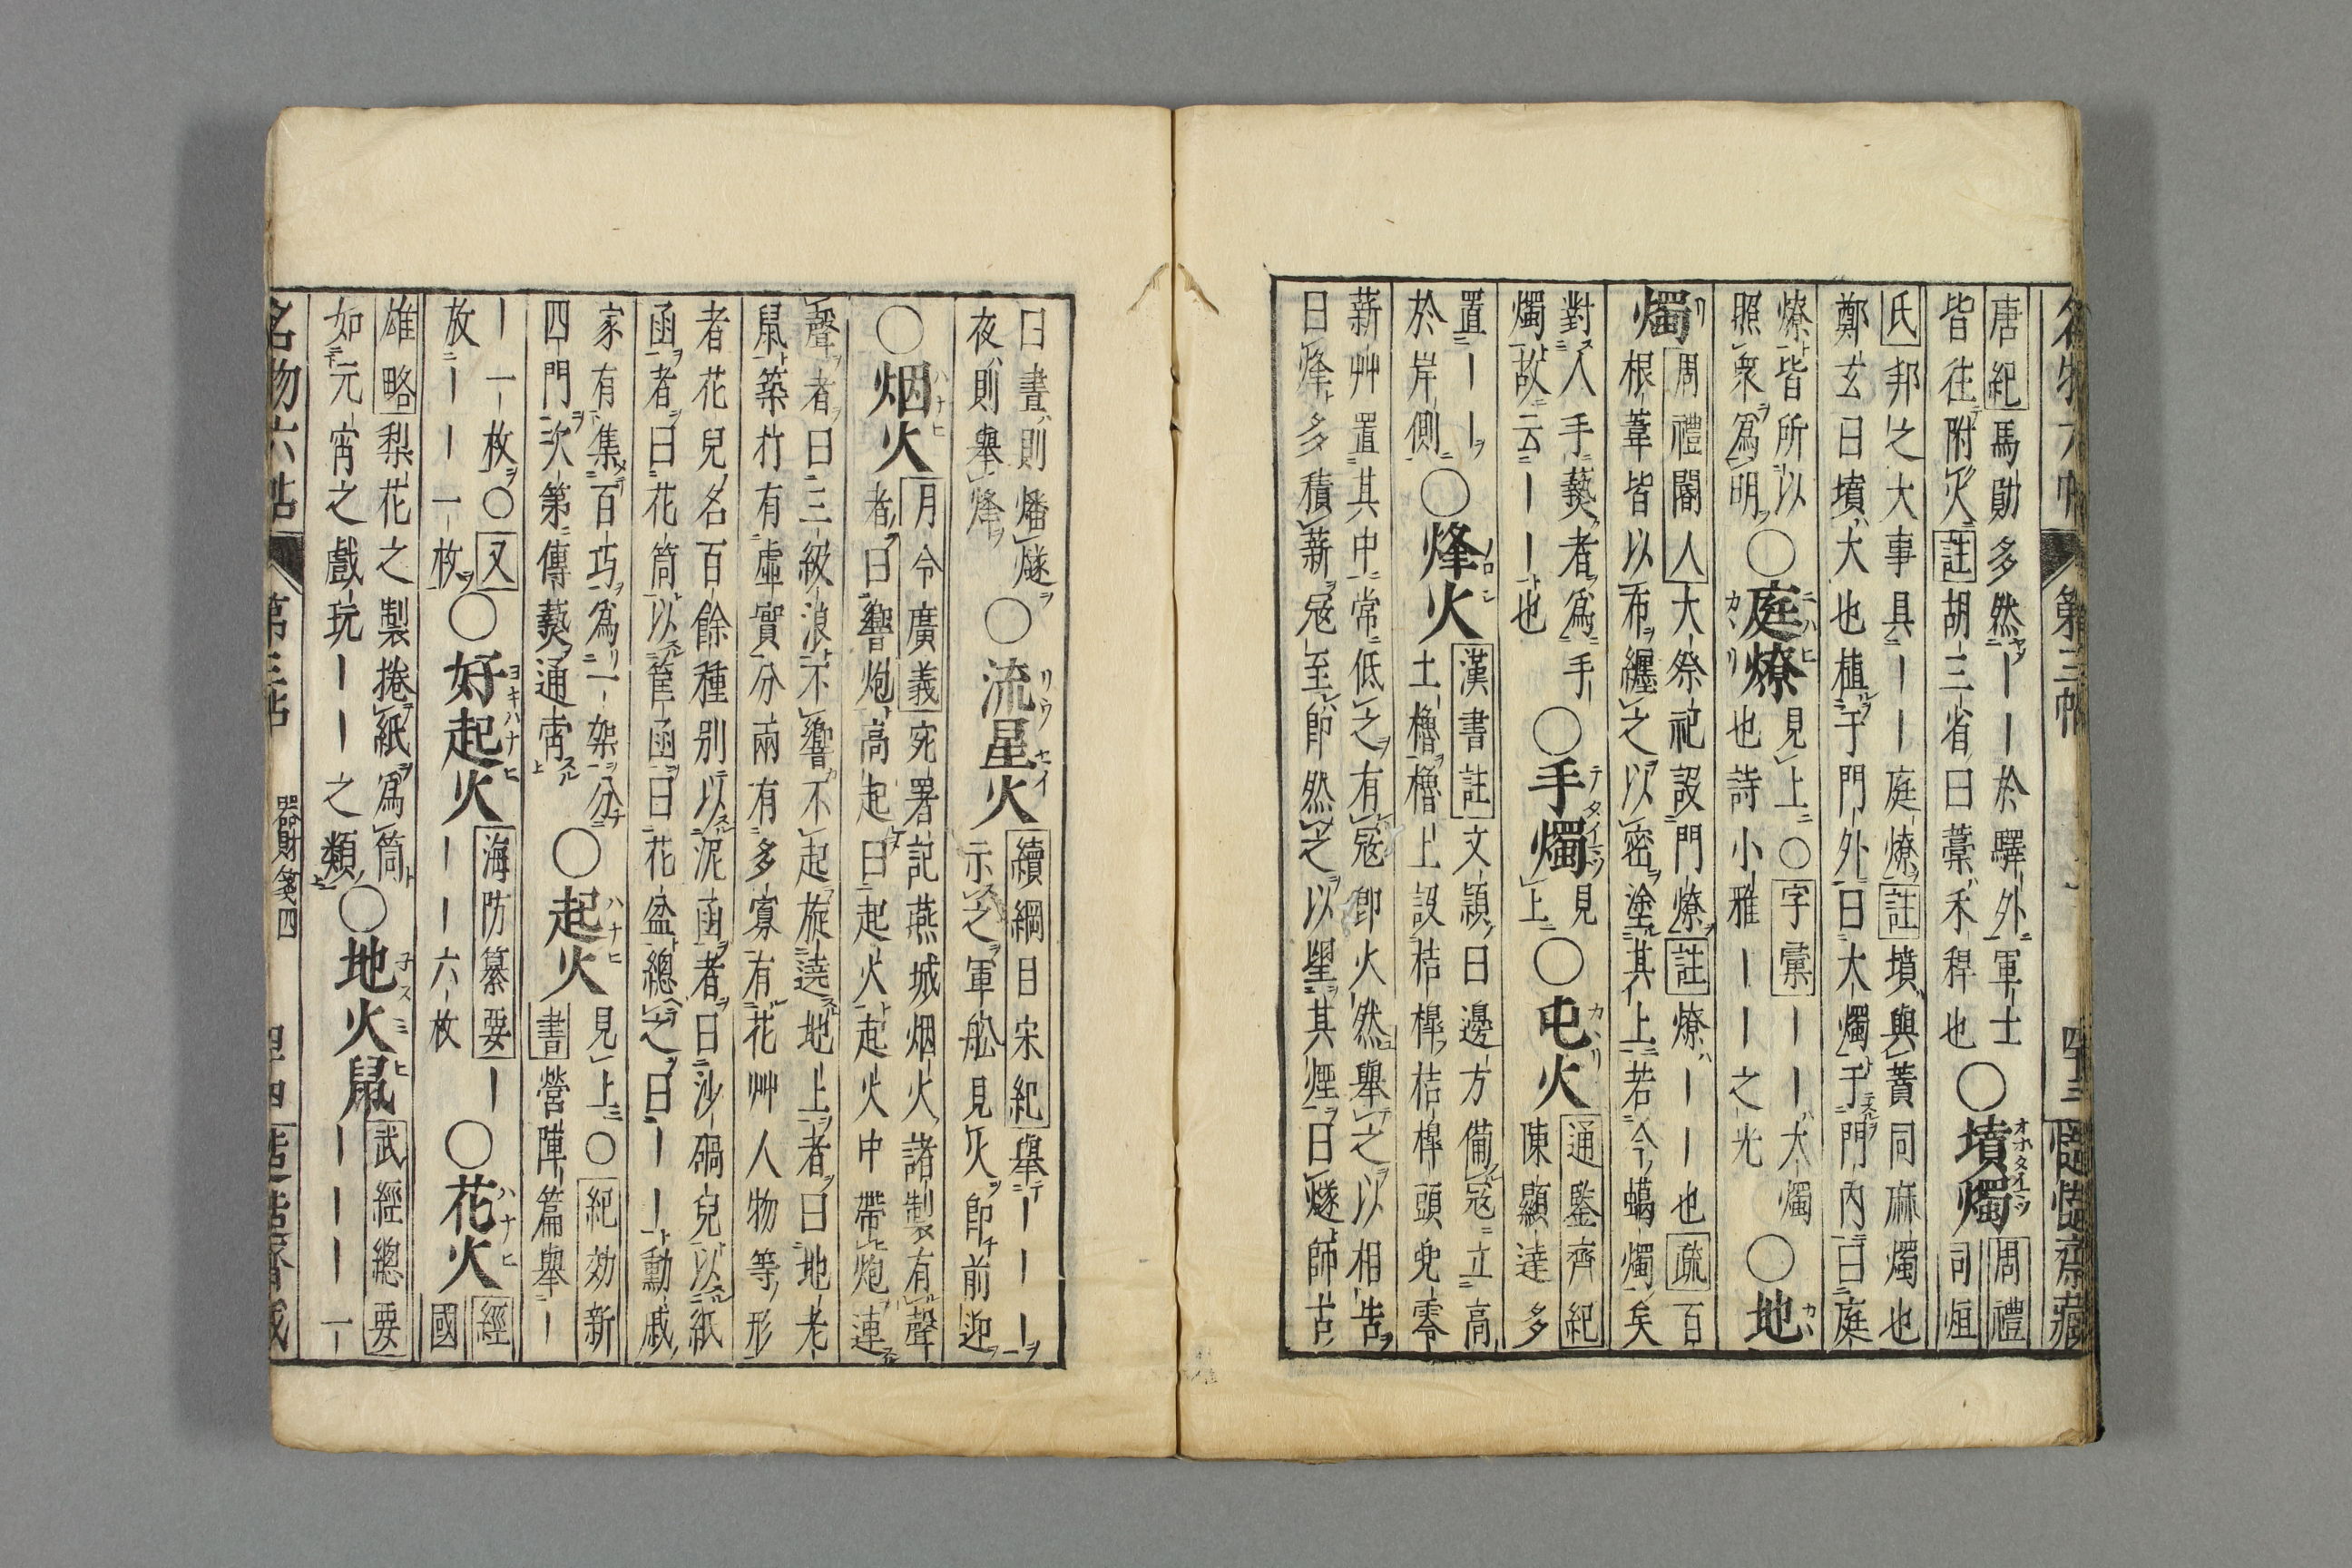 唐紀馬勛多然ーー於驛外軍士
皆往附火註胡三省曰藁禾稈也〇墳燭周禮司烜
氏邦之大事具ーー庭燎註墳與蕡同麻燭也
鄭玄曰墳大也植于門外曰大燭于門內曰庭
燎皆所以照衆爲明〇庭燎見上〇字彙ーー大燭也詩小雅ーー之光〇地
燭周禮閽人大祭祀設門燎註燎ーー也疏百
根葦皆以布纏之以密塗其上若今蠟燭矣
對人手爇者爲手燭故云ーー也〇手燭見上〇屯火通鑒齊紀陳顯達多
置ーー於岸側〇烽火漢書註文穎曰邊方備寇立高
土櫓櫓上設桔槹桔槹頭兜零
薪艸置其中常低之有寇即火然舉之以相告
曰烽多積薪寇至即然之以望其煙曰燧師古
曰晝則燔燧夜則舉烽〇流星火續綱目宋紀舉ーーー
示之軍舩見火即前迎
〇烟火月令廣義宛署記燕城烟火諸製有聲
者曰響炮高起曰起火起火中帶炮連
聲者曰三級浪不響不起旋遶地上者曰地老
鼠築杇有虛實分兩有多寡有花艸人物等形
者花兒名百餘種別以泥函者曰沙碢兒以紙
函者曰花筒以筐函曰花盆總之曰ーー勳戚
家有集百巧爲一架分四門次第傳爇通宵〇起火見上〇紀効新
書營陣篇舉ー
ー一枚〇又放ーー一枚〇好起火海防纂要ー
ーー六枚〇花火經國
雄略梨花之製捲紙爲筒
如元宵之戲玩ーー之類〇地火鼠武經總要
ーーー一
名物六帖 第三帖 器財箋四